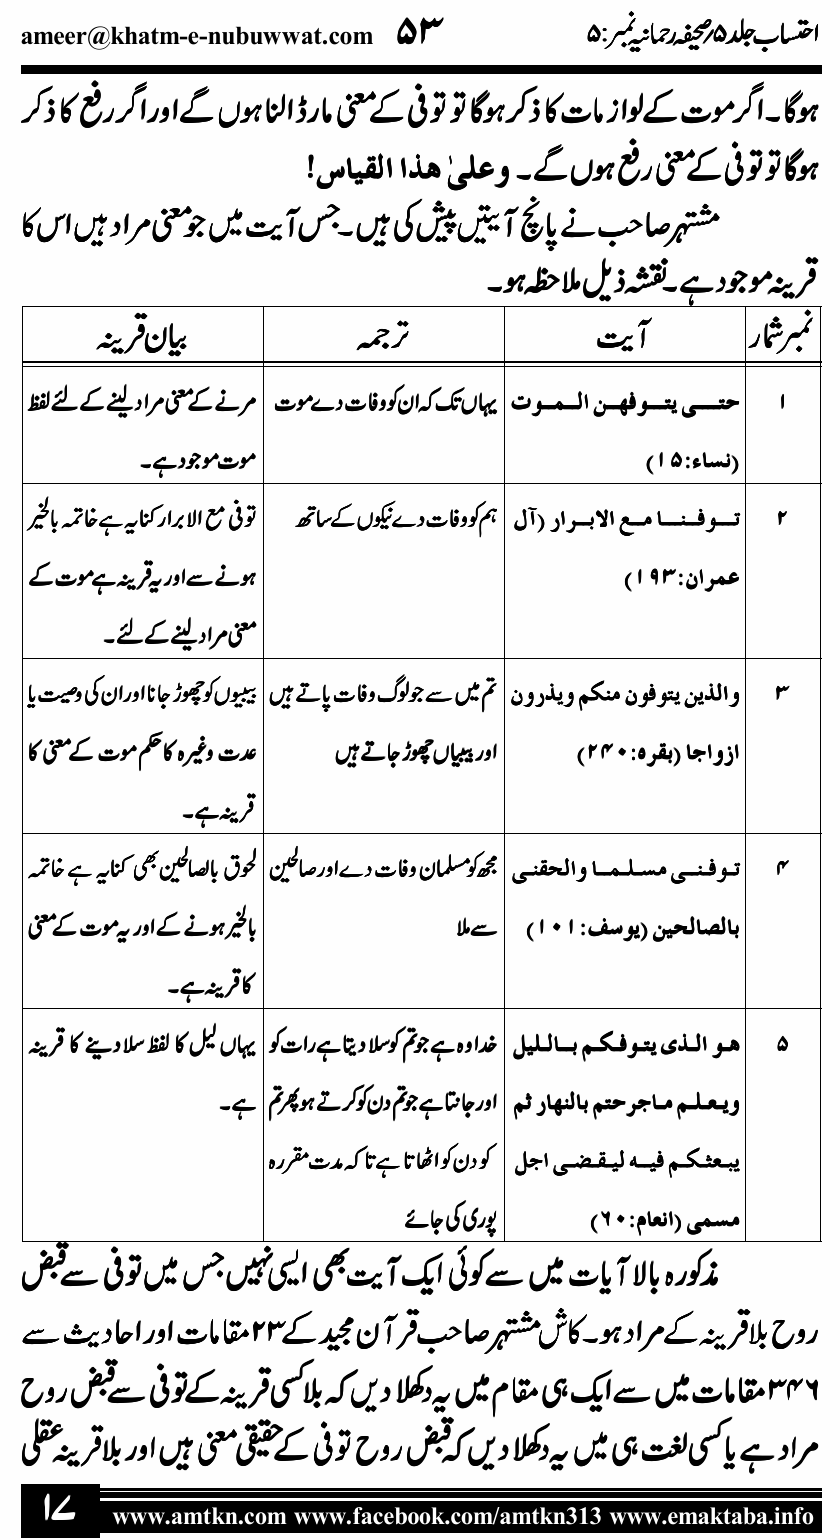 احتساب جلد ۵؍صحیفہ رحمانیہ نمبر:۵ ۵۳ ameer@khatm-e-nubuwwat.com
ہوگا۔اگر موت کے لوازمات کا ذکر ہوگا تو توفی کے معنی مار ڈالنا ہوں گے اور اگر رفع کا ذکر
ہوگا تو توفی کے معنی رفع ہوں گے۔ وعلیٰ ھذا القیاس!
مشتہر صاحب نے پانچ آیتیں پیش کی ہیں۔جس آیت میں جو معنی مراد ہیں اس کا
قرینہ موجود ہے۔نقشہ ذیل ملاحظہ ہو۔
نمبر شمار آیت ترجمہ بیان قرینہ
۱ حتی یتوفھن الموت یہاں تک کہ ان کو وفات دے موت مرنے کے معنی مراد لینے کے لئے لفظ
(نساء:۱۵) موت موجود ہے۔
۲ توفنا مع الابرار (آل ہم کو وفات دے نیکوں کے ساتھ توفی مع الابرار کنایہ ہے خاتمہ بالخیر
عمران:۱۹۳) ہونے سے اور یہ قرینہ ہے موت کے
معنی مراد لینے کے لئے۔
۳ والذین یتوفون منکم ویذرون تم میں سے جو لوگ وفات پاتے ہیں بیبیوں کو چھوڑ جانا اور ان کی وصیت یا
ازواجا (بقرہ:۲۴۰) اور بیبیاں چھوڑ جاتے ہیں عدت وغیرہ کا حکم موت کے معنی کا
قرینہ ہے۔
۴ توفنی مسلما والحقنی مجھ کو مسلمان وفات دے اور صالحین لحوق بالصالحین بھی کنایہ ہے خاتمہ
بالصالحین (یوسف:۱۰۱) سے ملا بالخیر ہونے کے اور یہ موت کے معنی
کا قرینہ ہے۔
۵ ھو الذی یتوفکم باللیل خدا وہ ہے جو تم کو سلا دیتا ہے رات کو یہاں لیل کا لفظ سلا دینے کا قرینہ
ویعلم ماجرحتم بالنھار ثم اور جانتا ہے جو تم دن کو کرتے ہو پھر تم ہے۔
یبعثکم فیہ لیقضی اجل کو دن کو اٹھاتا ہے تاکہ مدت مقررہ
مسمی (انعام:۶۰) پوری کی جائے
مذکورہ بالا آیات میں سے کوئی ایک آیت بھی ایسی نہیں جس میں توفی سے قبض
روح بلا قرینہ کے مراد ہو۔کاش مشتہر صاحب قرآن مجید کے ۲۳ مقامات اور احادیث سے
۳۴۶ مقامات میں سے ایک ہی مقام میں یہ دکھلا دیں کہ بلا کسی قرینہ کے توفی سے قبض روح
مراد ہے یا کسی لغت ہی میں یہ دکھلا دیں کہ قبض روح توفی کے حقیقی معنی ہیں اور بلا قرینہ عقلی
۱۷ www.amtkn.com www.facebook.com/amtkn313 www.emaktaba.info